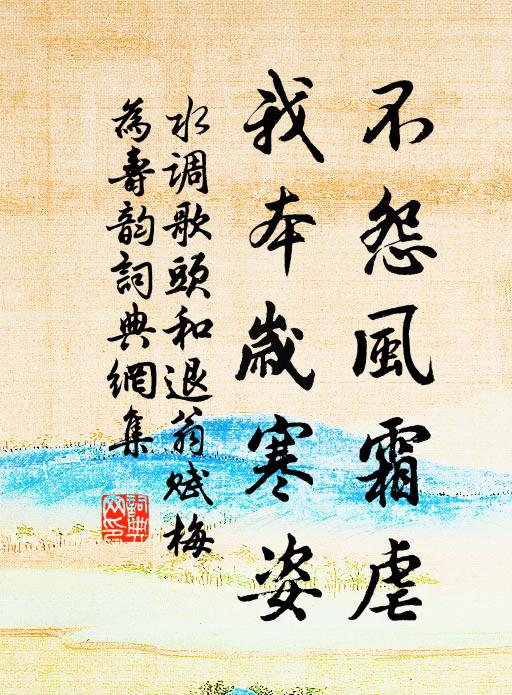 不怨風霜虐
我本歲寒姿
水调歌頭和退翁賦梅
為壽韵詞典網集